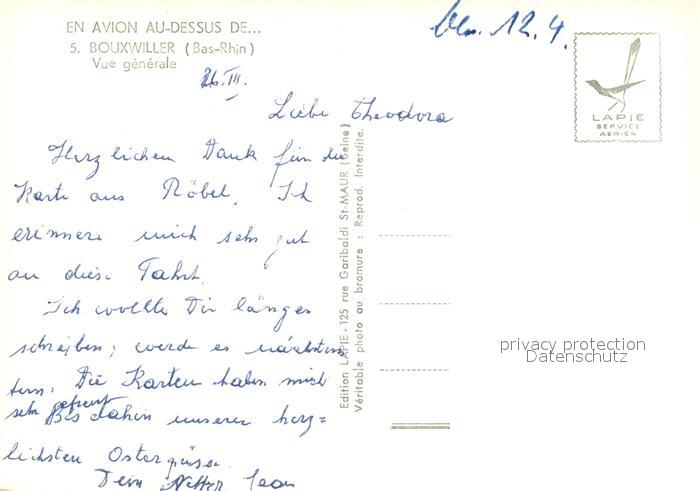 EN AVION AU-DESSUS DE...
5. BOUXWILLER (Bas-Rhin)
Vue générale
12.4.
26.III.
Liebe Theodora
Herzlichen Dank für die
Karte aus Röbel. Ich
erinnere mich sehr gut
an diese Fahrt.
Ich wollte Dir länger
schreiben; werde es nächstens
tun. Die Karten haben mich
sehr gefreut
Bis dahin unseren herz=
lichsten Ostergrüsse.
Dein Jean
Edition LAPIE - 125 rue Garibaldi St-MAUR (Seine)
Véritable photo au bromure : Reprod. Interdite.
LAPIE
SERVICE
AERIEN
privacy protection
Datenschutz